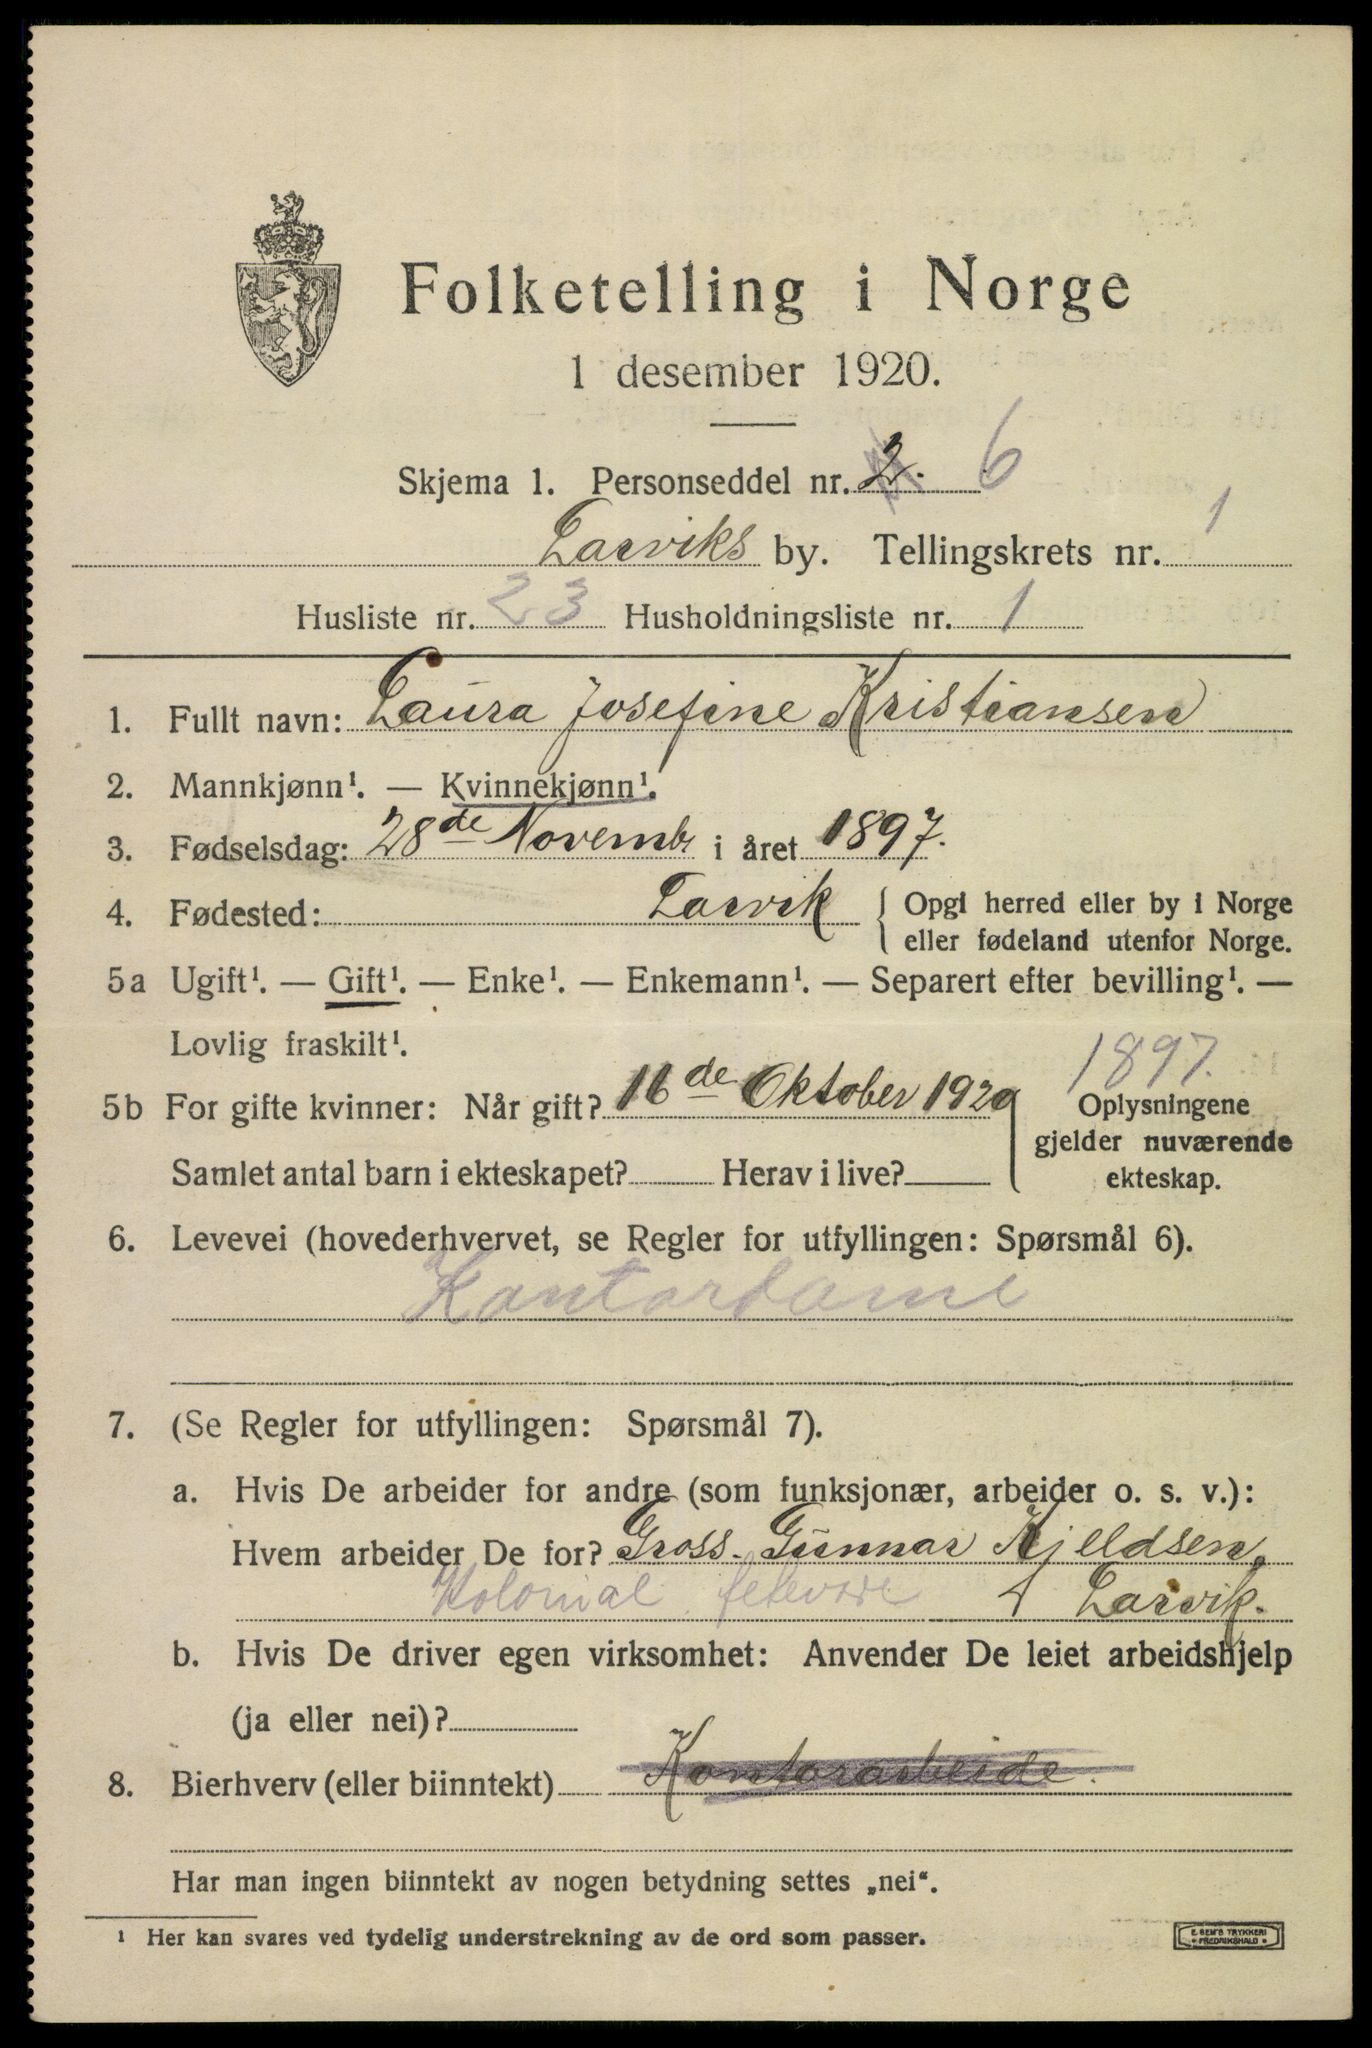 Folketelling i Norge
1 desember 1920.
Skjema 1. Personseddel nr. 2. 6
Larviks by. Tellingskrets nr. 1
Husliste nr. 23 Husholdningsliste nr. 1
1. Fullt navn: Laura Josefine Kristiansen
2. Mannkjønn¹. — Kvinnekjønn¹.
3. Fødselsdag: 28de Novembr i året 1897.
4. Fødested: Larvik { Opgi herred eller by i Norge
eller fødeland utenfor Norge.
5a Ugift¹. — Gift¹. — Enke¹. — Enkemann¹. — Separert efter bevilling¹. —
Lovlig fraskilt¹.
1897.
5b For gifte kvinner: Når gift? 16de Oktober 1920 Oplysningene
gjelder nuværende
Samlet antal barn i ekteskapet? Herav i live? ekteskap.
6. Levevei (hovederhvervet, se Regler for utfyllingen: Spørsmål 6).
Kontordame
7. (Se Regler for utfyllingen: Spørsmål 7).
a. Hvis De arbeider for andre (som funksjonær, arbeider o. s. v.):
Hvem arbeider De for? Gross. Gunnar Kjeldsen,
Kolonial fetevare Larvik.
b. Hvis De driver egen virksomhet: Anvender De leiet arbeidshjelp
(ja eller nei)?
8. Bierhverv (eller biinntekt) Kontorarbeide.
Har man ingen biinntekt av nogen betydning settes „nei“.
¹ Her kan svares ved tydelig understrekning av de ord som passer.
E. SEM'S TRYKKERI
FREDRIKSHALD